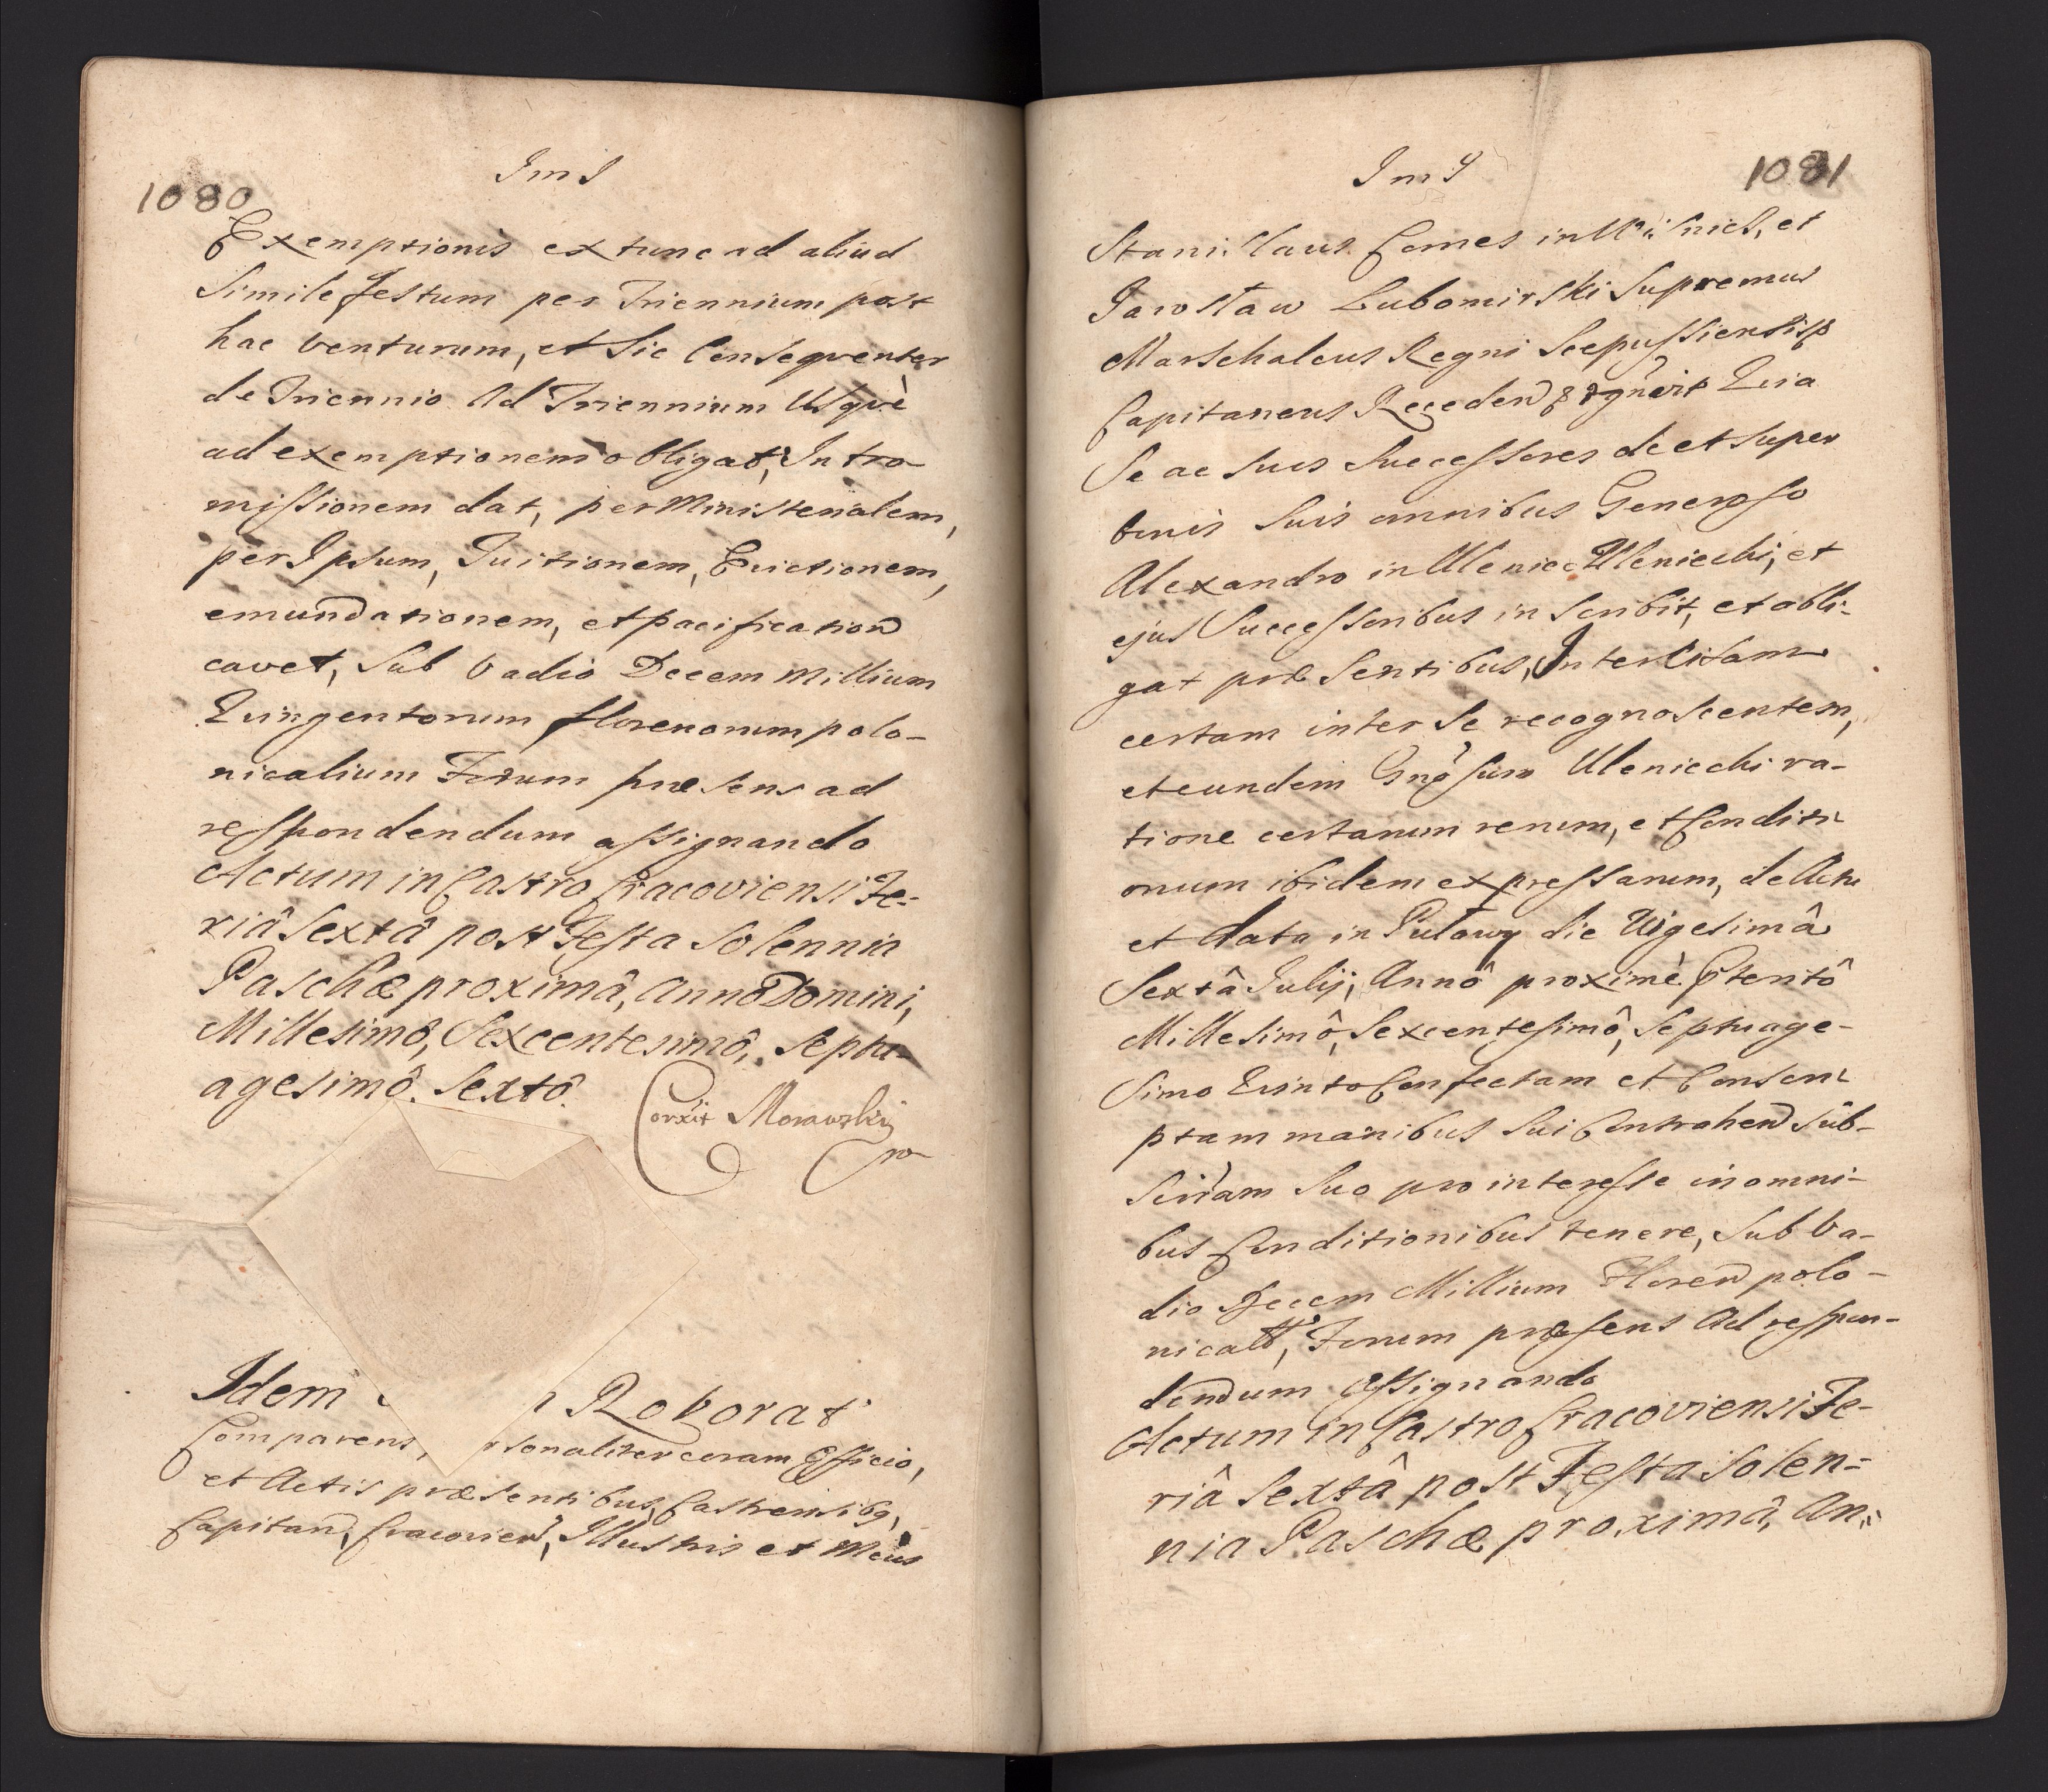 1080
Im I
Exemptionis ex tunc ad aliud
Simile Festum per Triennium post
hac venturum, et Sic Consequenter
de Triennio Ad Triennium Usquè
ad exemptionem obligat, Intro
missionem dat, per Ministerialem,
per Ipsum, Tuitionem, Evictionem,
emundationem, et pacification
cavet, Sub Vadio Decem Millium
Quingentorum florenorum polo-
nicalium Forum præsens ad
respondendum assignando
Actum in Castro Cracoviensi Fe-
riâ Sextâ post Festa Solennia
Paschæ proximâ, Annô Domini,
Millesimô, Sexcentesimô, Septu-
agesimô. Sextô.
Corxit Morawski
Idem Roborat
Comparens, sonaliter coram Officio,
et Actis præsentibus, Castrensibq,
Capitan, Cracovien, Illustris et
1081
Im I
Stanislaus Comes in Wisnicz, et
Jarosław Lubomirski Supremus
Marschalcus Regni Scepussiensisq
Capitaneus Quia
Se ac Suos Successores de et super
bonis Suis omnibus Generoso
Alexandro in Uleniec Uleniecki, et
ejus Successoribus inscribit, et obli-
gat præsentibus, Intercisam
certam inter Se recognoscentem,
et eundem Gnosum Ulenieckira-
tione certarum rerum, et Conditi
onum ibidem expressarum, de Actu
et data in Puławy die Vigesimâ
Sextâ Julij, Annô proximè ptteritô
Millesimô, Sexcentesimô, Septuage-
simo Quinto Confectam et Conscri
ptam manibus Sui Contrahen Sub-
Scriram Suo pro interesse in omni-
bus Conditionibus tenere, Sub Va-
dio Decem Millium Floren polo-
nicall, Forum præsens Ad respon-
dendum Assignando
Actum in Castro Cracoviensi Fe-
riâ Sextâ post Festa Solen-
nia Paschæ proximâ, An-